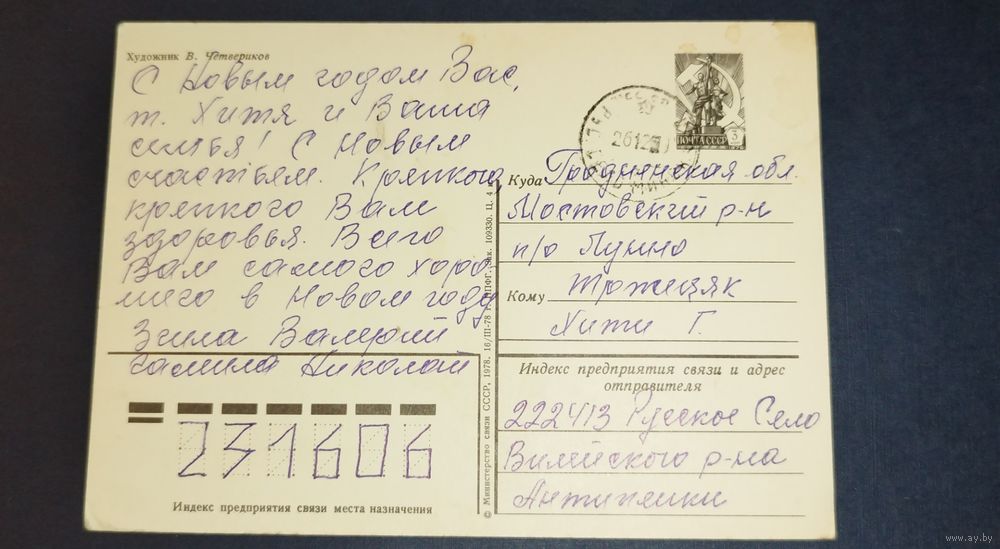 Художник В. Четвериков
С Новым годом Вас,
т. Хитя и Ваша
семья! С Новым
счастьем. Крепкого,
крепкого Вам
здоровья. Всего
Вам самого хоро
шего в Новом году
Зеила Валерий
Галина Николай
ПОЧТА СССР
3
2612
Куда Гродненская обл.
Мостовский р-н
п/о Лунно
Кому
Хити Г.
Индекс предприятия связи и адрес
отправителя
222413 Русское Село
Вилейского р-на
231606
Индекс предприятия связи места назначения
© Министерство связи СССР, 1978. 16/III-78 ППФГ. Зак. 109330. Ц. 4
www.ay.by